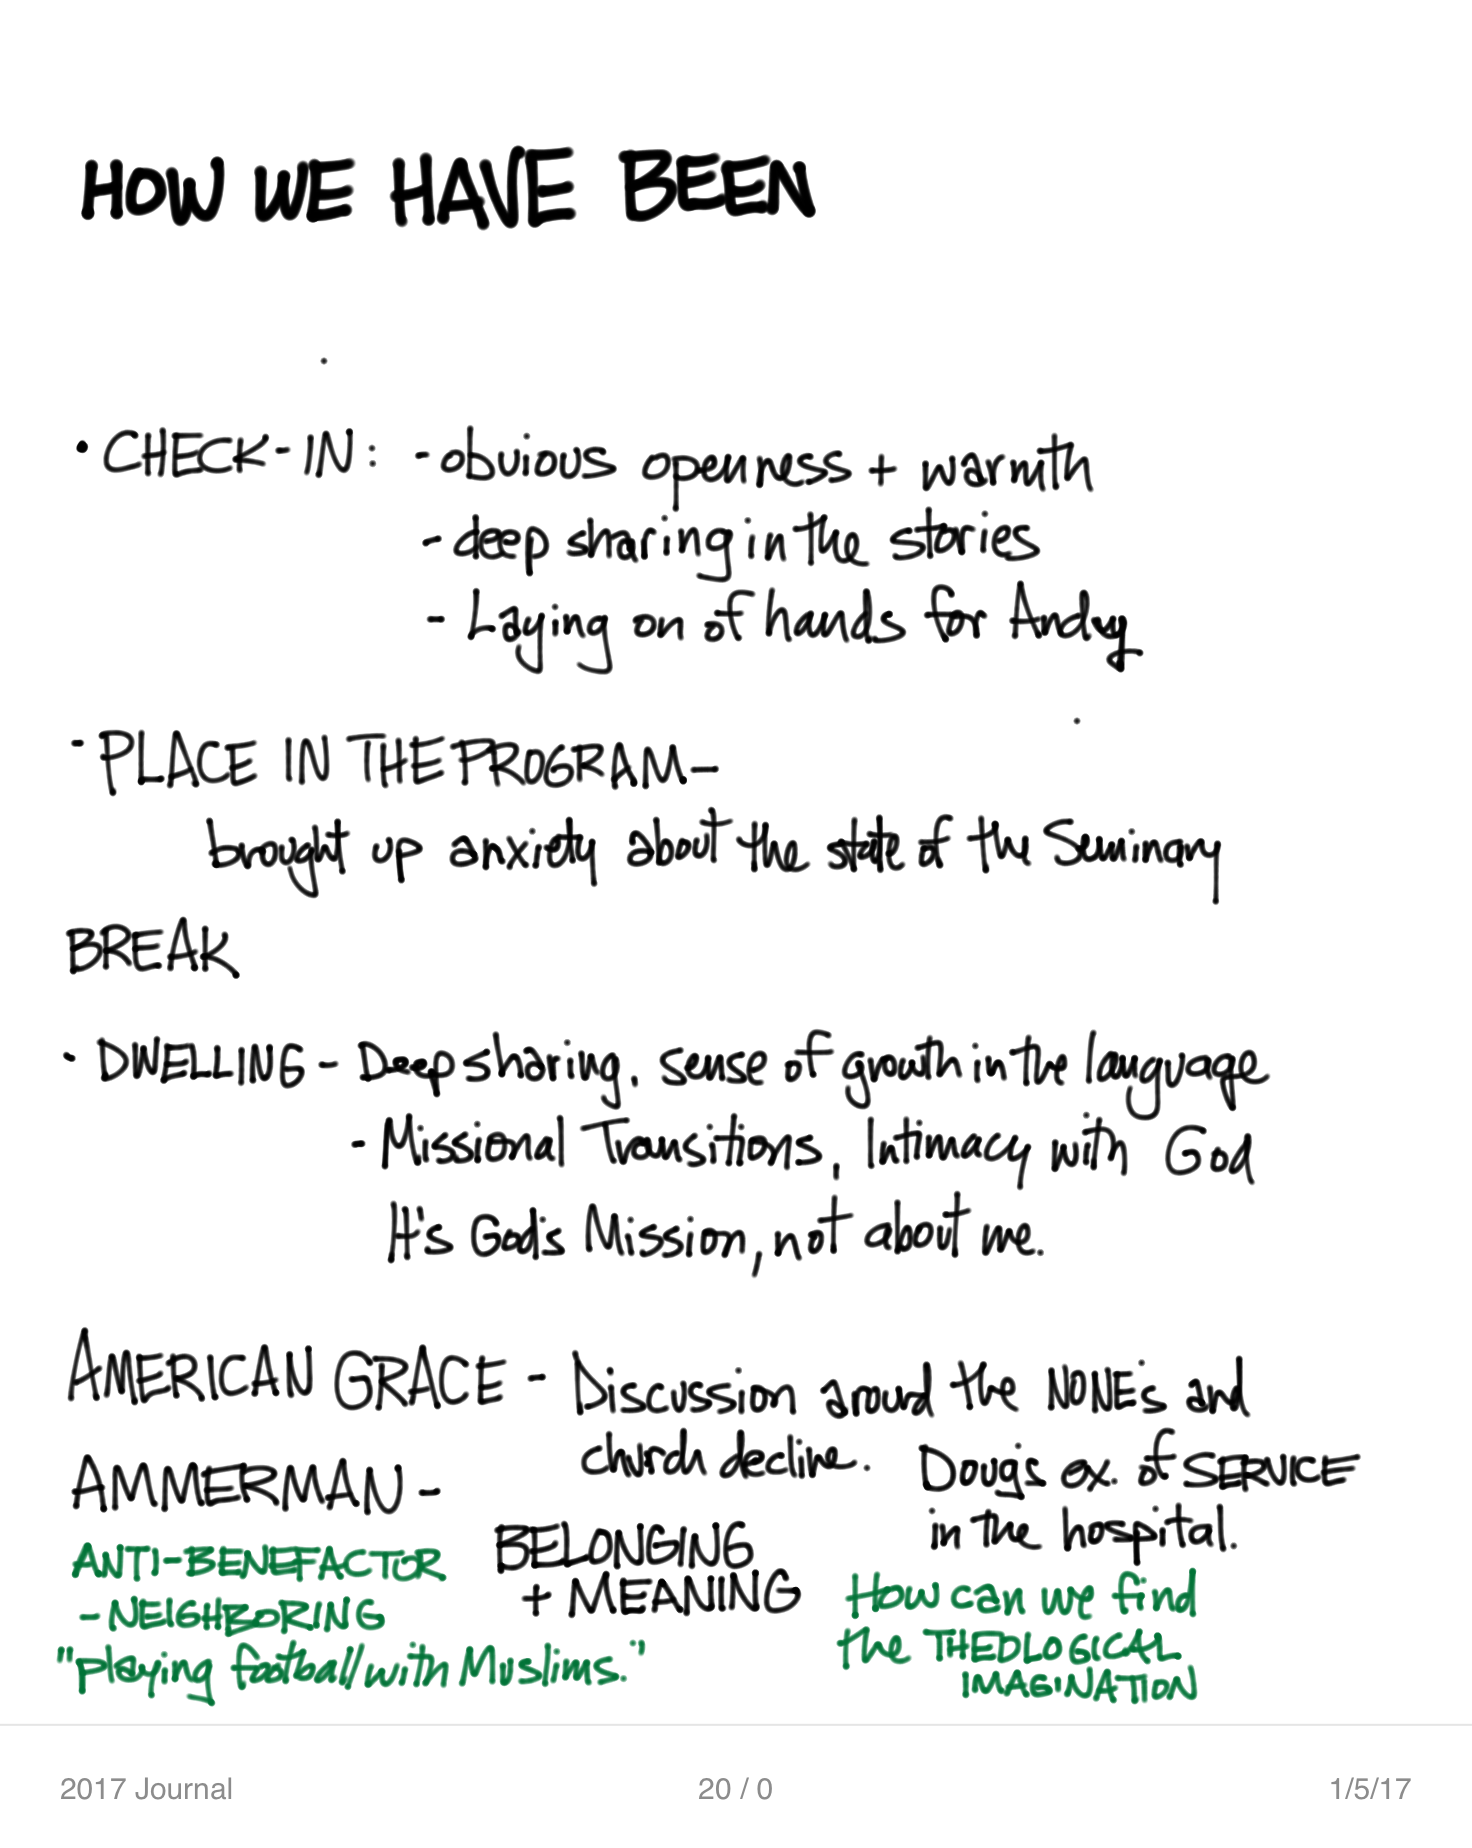 HOW WE HAVE BEEN
• CHECK-IN: - obvious openness + warmth
- deep sharing in the stories
- Laying on of hands for Andy
- PLACE IN THE PROGRAM -
brought up anxiety about the state of the Seminary
BREAK
• DWELLING - Deep sharing. sense of growth in the language
- Missional Transitions, Intimacy with God
It's God's Mission, not about me.
AMERICAN GRACE - Discussion around the NONE's and
church decline. Doug's ex. of SERVICE
in the hospital.
AMMERMAN -
BELONGING
+ MEANING
ANTI-BENEFACTOR
- NEIGHBORING
"playing football with Muslims."
How can we find
the THEOLOGICAL
IMAGINATION
2017 Journal 20 / 0 1/5/17